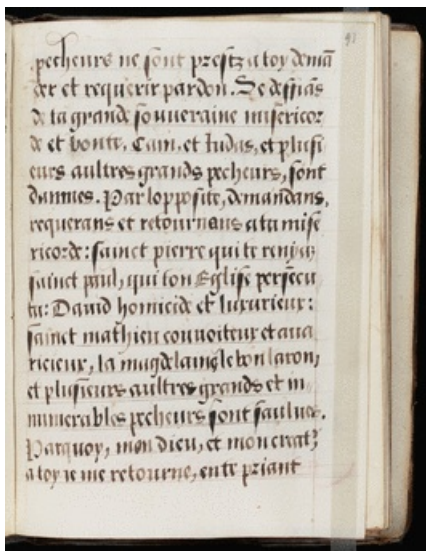 91
pecheurs ne sont prestz a toy demā
der et requerir pardon. Se deffiās
de la grande souueraine misericor
de et bonte, Cain, et Iudas, et plusi
eurs aultres grands pecheurs, sont
dannes. Par lopposite, demandans,
requerans et retournans a ta mise
ricorde: sainct pierre qui te renya
sainct paul, qui ton Eglise persecu
ta: Dauid homicide et luxurieux:
sainct mathieu conuoiteux et aua
ricieux, la magdelaine le bon laron,
et plusieurs aultres grands et in
numerables pecheurs sont saulues.
Parquoy, mon dieu, et mon creatr̄
a toy ie me retourne, en te priant